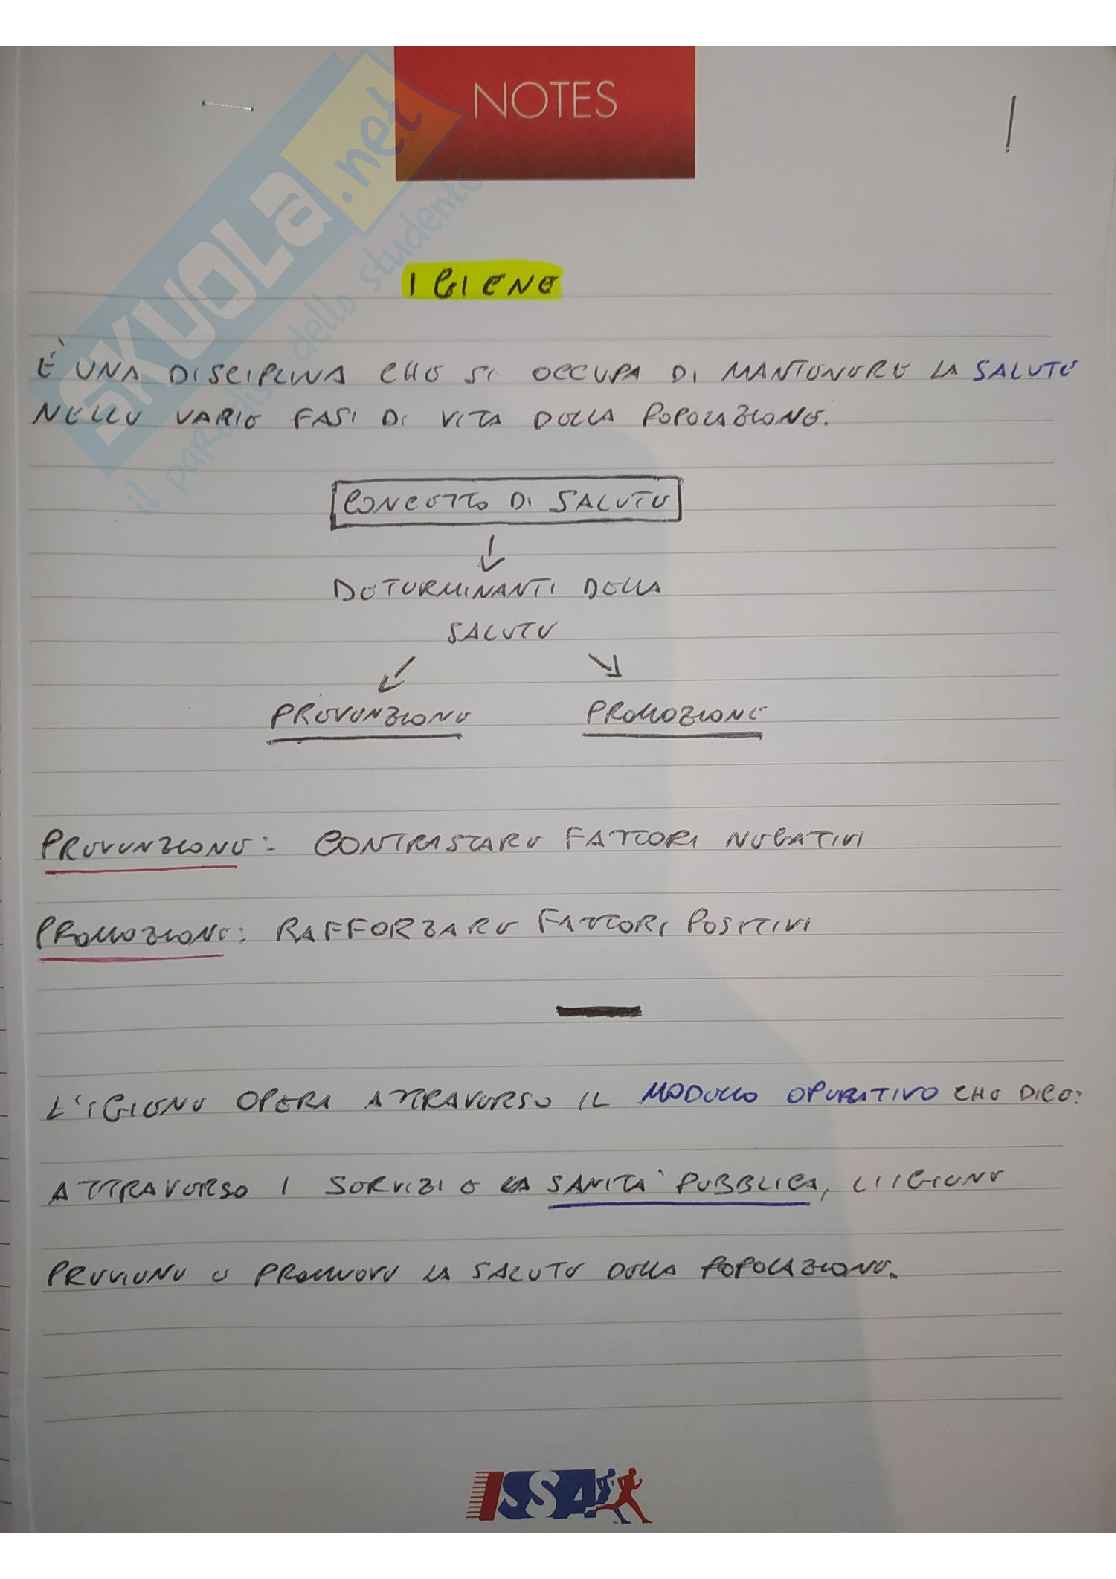 NOTES
1
SKUOLA.net
il paradiso dello studente
IGIENE
È UNA DISCIPLINA CHE SI OCCUPA DI MANTENERE LA SALUTE
NELLE VARIE FASI DI VITA DELLA POPOLAZIONE.
CONCETTO DI SALUTE
DETERMINANTI DELLA
SALUTE
PREVENZIONE PROMOZIONE
PREVENZIONE: CONTRASTARE FATTORI NEGATIVI
PROMOZIONE: RAFFORZARE FATTORI POSITIVI
L'IGIENE OPERA ATTRAVERSO IL MODELLO OPERATIVO CHE DICE:
ATTRAVERSO I SERVIZI E LA SANITA' PUBBLICA, L'IGIENE
PREVIENE E PROMUOVE LA SALUTE DELLA POPOLAZIONE.
ISSA